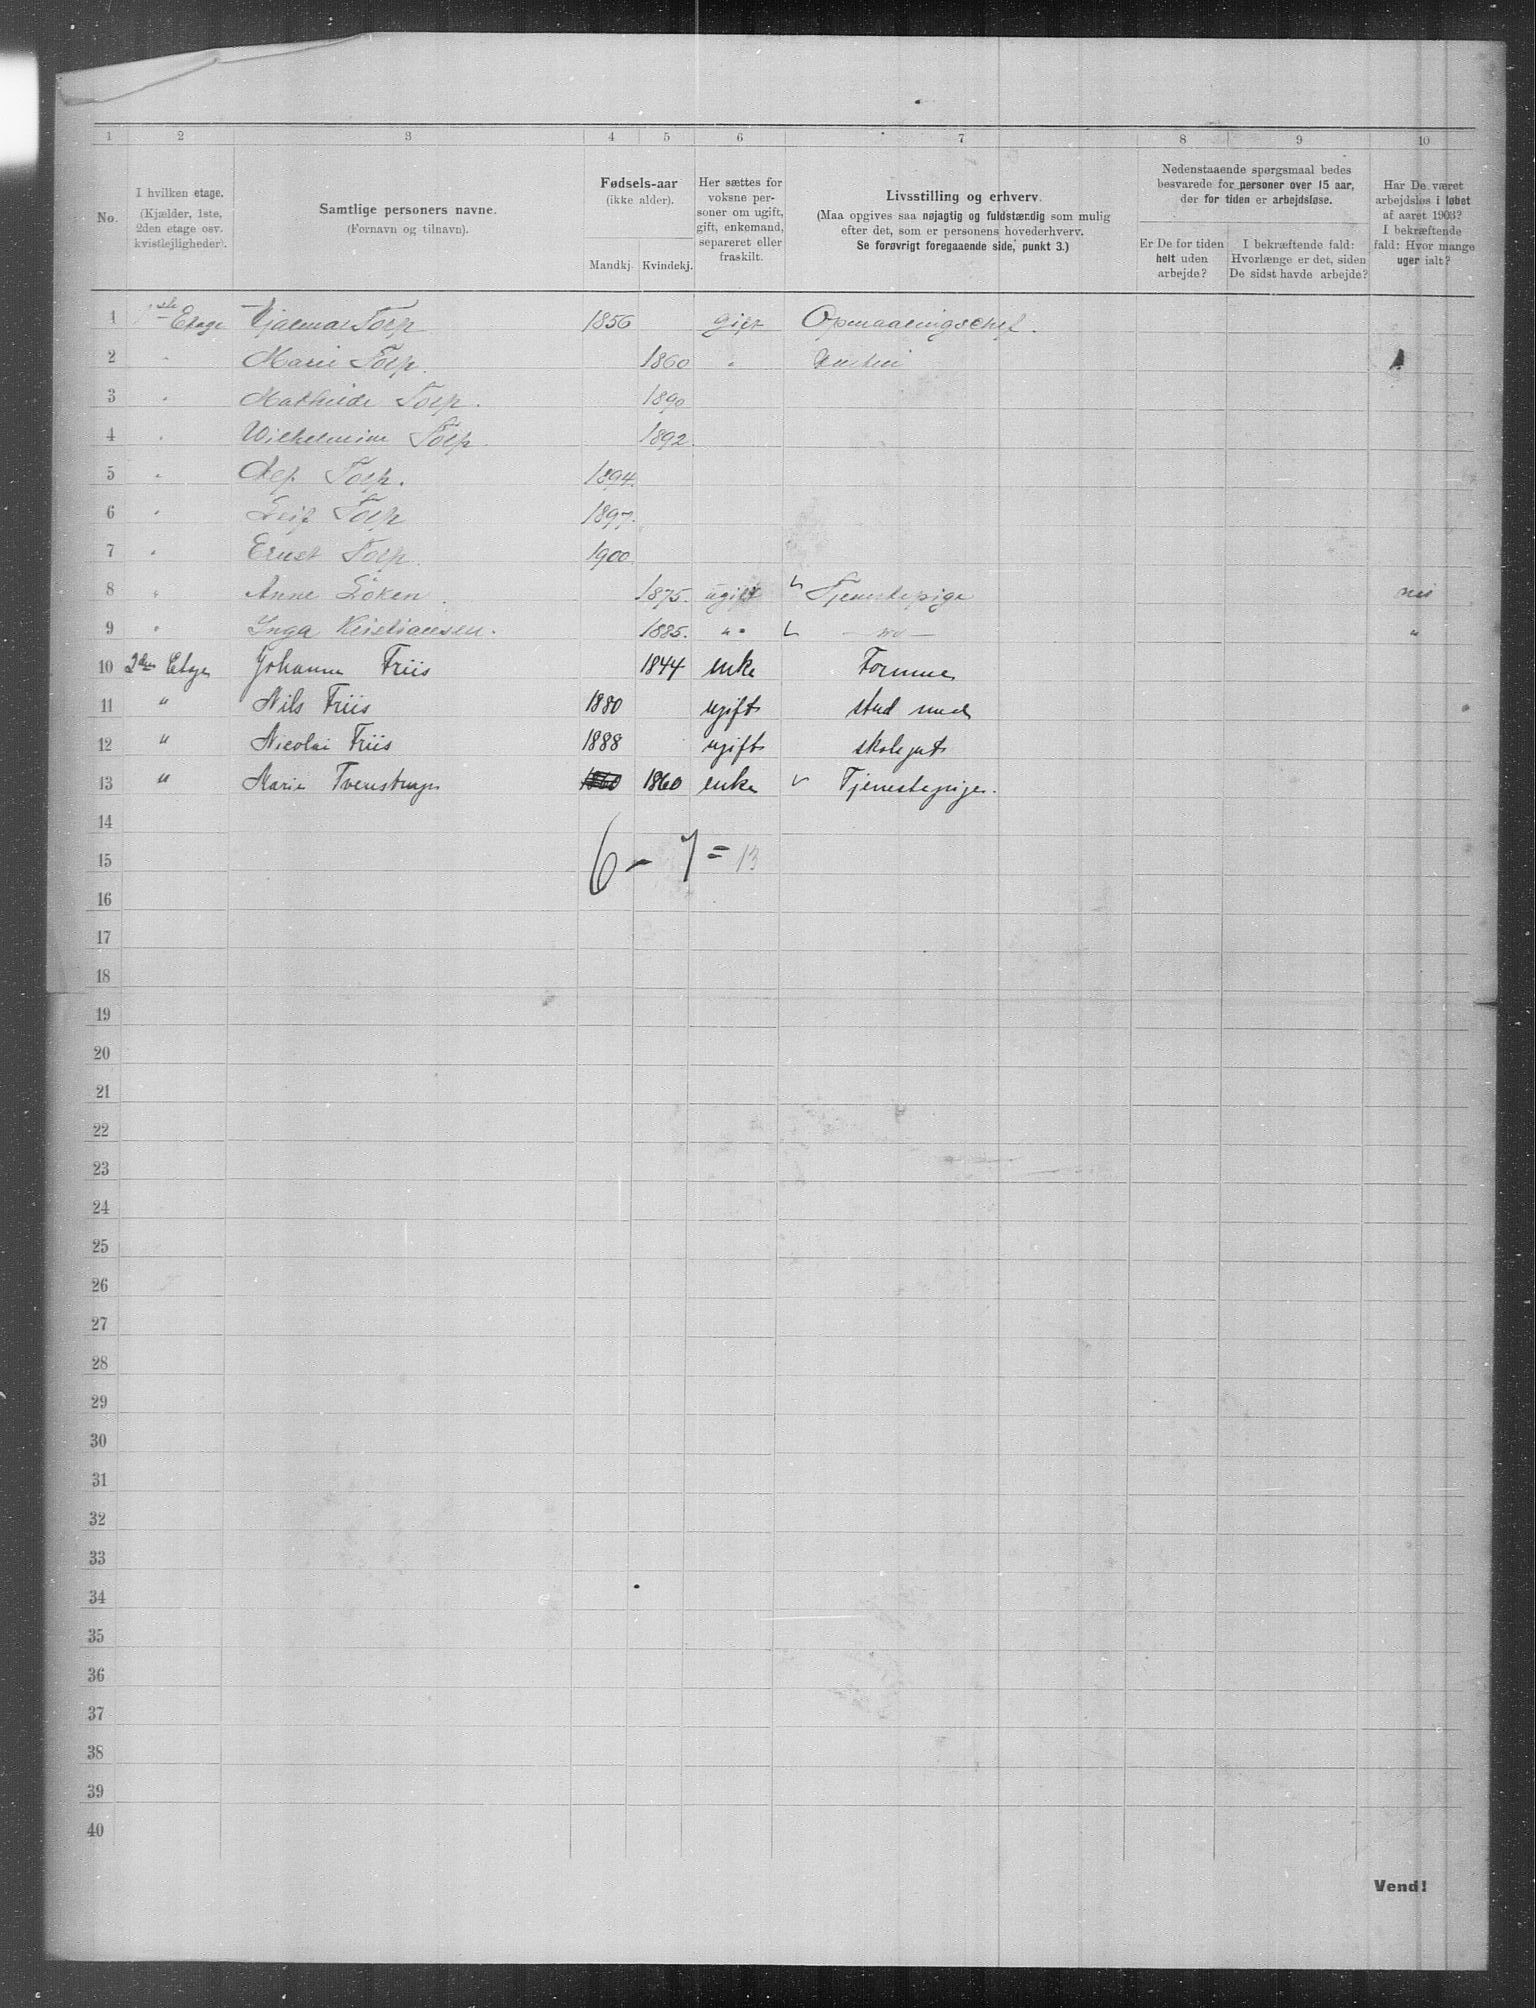 1 2 3 4 5 6 7 8 9 10
No.
I hvilken etage.
(Kjælder, 1ste,
2den etage osv.
kvistlejligheder).
Samtlige personers navne.
(Fornavn og tilnavn).
Fødsels-aar
(ikke alder).
Mandkj. Kvindekj.
Her sættes for
voksne per-
soner om ugift,
gift, enkemand,
separeret eller
fraskilt.
Livsstilling og erhverv.
(Maa opgives saa nøjagtig og fuldstændig som mulig
efter det, som er personens hovederhverv.
Se forøvrigt foregaaende side, punkt 3.)
Nedenstaaende spørgsmaal bedes
besvarede for personer over 15 aar,
der for tiden er arbejdsløse.
Er De for tiden
helt uden
arbejde?
I bekræftende fald:
Hvorlænge er det, siden
De sidst havde arbejde?
Har De været
arbejdsløs i løbet
af aaret 1903?
I bekræftende
fald: Hvor mange
uger ialt?
1 1ste Etage Hjalmar Torp 1856 gift Opmaalingschef.
2 " Marie Torp. 1860 " Hustru
3 " Mathilde Torp. 1890
4 " Wilhelmine Torp. 1892.
5 " Alf Torp. 1894.
6 " Leif Torp 1897.
7 " Ernst Torp. 1900.
8 " Anne Løken. 1875. ugift Tjenestepige nei
9 " Inga Kristiansen. 1885. " " — " — "
10 2den Etage Johanne Friis 1844 enke Formue
11 " Nils Friis 1880 ugift stud med
12 " Nicolai Friis 1888 ugift skolegut
13 " Marie Tvenstrup 1860 1860 enke Tjenestepige.
14
15 6 - 7 = 13
16
17
18
19
20
21
22
23
24
25
26
27
28
29
30
31
32
33
34
35
36
37
38
39
40
Vend!